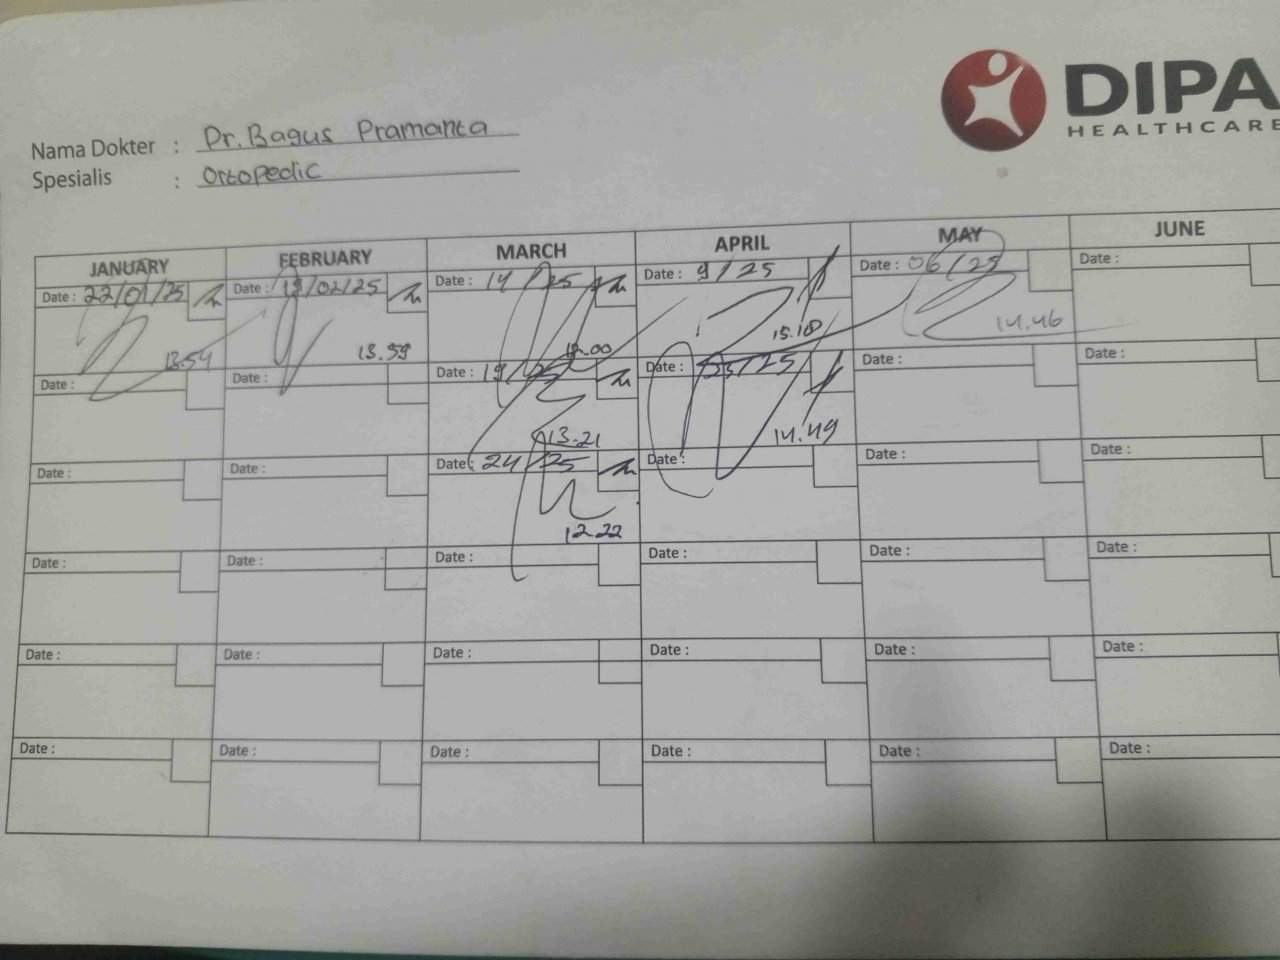 DIPA
HEALTHCARE
Nama Dokter : Dr. Bagus Pramanta
Spesialis : Ortopedic
JANUARY FEBRUARY MARCH APRIL MAY JUNE
Date : 22/01/25 Date : 19/02/25 Date : 14/25 Date : 9/25 Date : 06/25 Date :
13.54 13.59 12.00 15.18 14.46
Date : Date : Date : 19/25 Date : /25 Date : Date :
13.21 14.49
Date : Date : Date : 24/25 Date : Date : Date :
12.22
Date : Date : Date : Date : Date : Date :
Date : Date : Date : Date : Date : Date :
Date : Date : Date : Date : Date : Date :